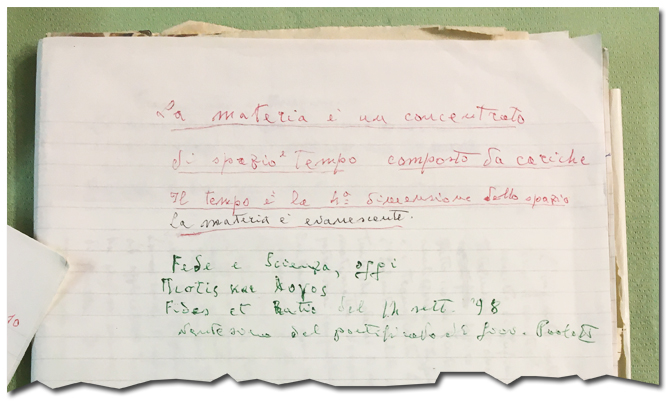 La materia è un concentrato
di spazio e Tempo composto da cariche
Il tempo è la 4ª dimensione dello spazio
La materia è evanescente.
Fede e Scienza, oggi
Πιστις και Λογος
Fides et Ratio del 14 sett. '98
del pontificato di Giov. Paolo II